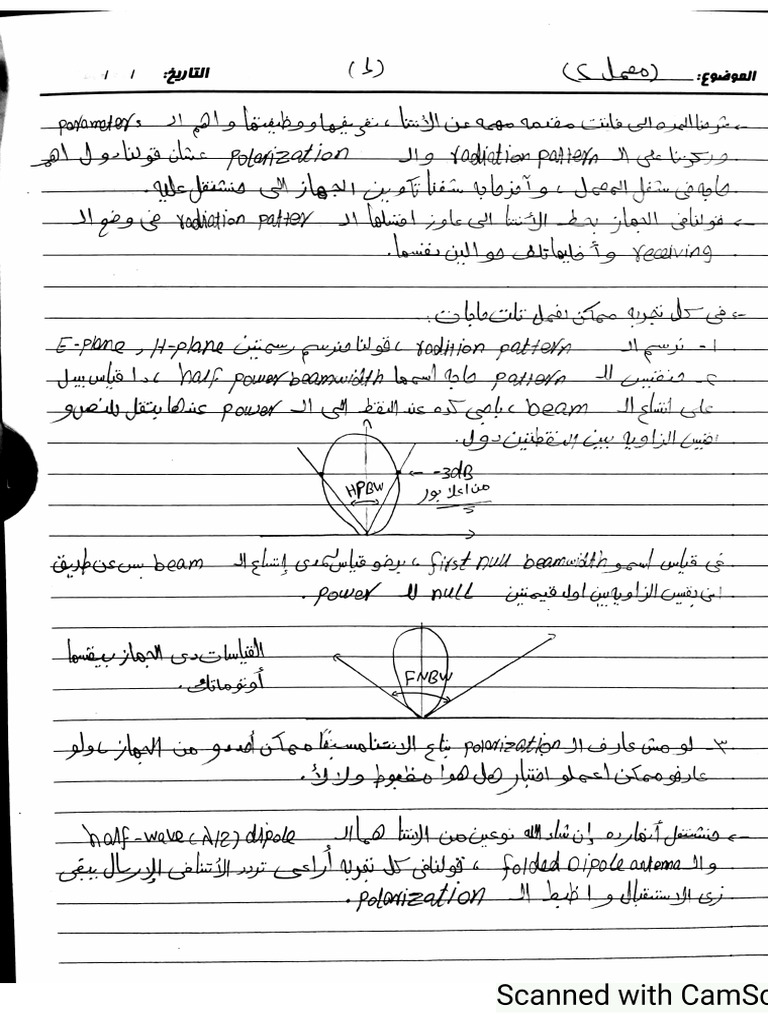 الموضوع: (معمل 2) (1) التاريخ: / /
-> شرحنا المره الى فاتت مقدمه مهمه عن الأنتنا، تعريفها ووظيفتها واهم الـ parameters
وركزنا على الـ radiation pattern والـ polarization عشان قولنا دول اهم
حاجه فى شغل المعمل، وآخر حاجه شفنا تكوين الجهاز الى هنشتغل عليه.
-> قولنا فى الجهاز بحط الأنتنا الى عاوز اختبلها الـ radiation patter فى وضع الـ
receiving وأخليها تلف حوالين نفسها.
-> فى كل تجربه ممكن نعمل تلت حاجات:
١- نرسم الـ radition pattern، قولنا هنرسم رسمتين E-plane, H-plane
٢- هنقيس للـ pattern حاجه اسمها half power beamwidth، دا قياس بيدل
على اتساع الـ beam، باجى كده عند النقط التى الـ power عندها بتقل للنص و
اقيس الزاويه بين النقطتين دول.
-3dB
HPBW
من اعلا بور
فى قياس اسمو first null beamwidth، برضو قياس لمدى إتساع الـ beam بس عن طريق
انى بقيس الزاويه بين اول قيمتين null للـ power.
القياسات دى الجهاز بيقسها
FNBW
أوتوماتك.
٣- لو مش عارف الـ polarization بتاع الانتنا مسبقًا ممكن أحددو من الجهاز، ولو
عارفو ممكن اعملو اختبار هل هوا مظبوط ولا لأ.
-> هنشتغل أنهارده إن شاء الله نوعين من الانتنا هما الـ half-wave (λ/2) dipole
والـ folded Dipole antenna، قولنا فى كل تجربه أراعى تردد الأنتنا فى الإرسال يبقى
زى الاستقبال واظبط الـ polarization.
Scanned with CamSc